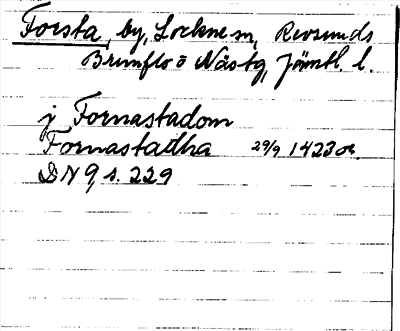 Forsta, by, Lockne sn, Revsunds
Brunflo o Näskg, Jämtl. l.
j Fornastadom
Fornastadha 29/9 1423 or.
DN 9, s. 229